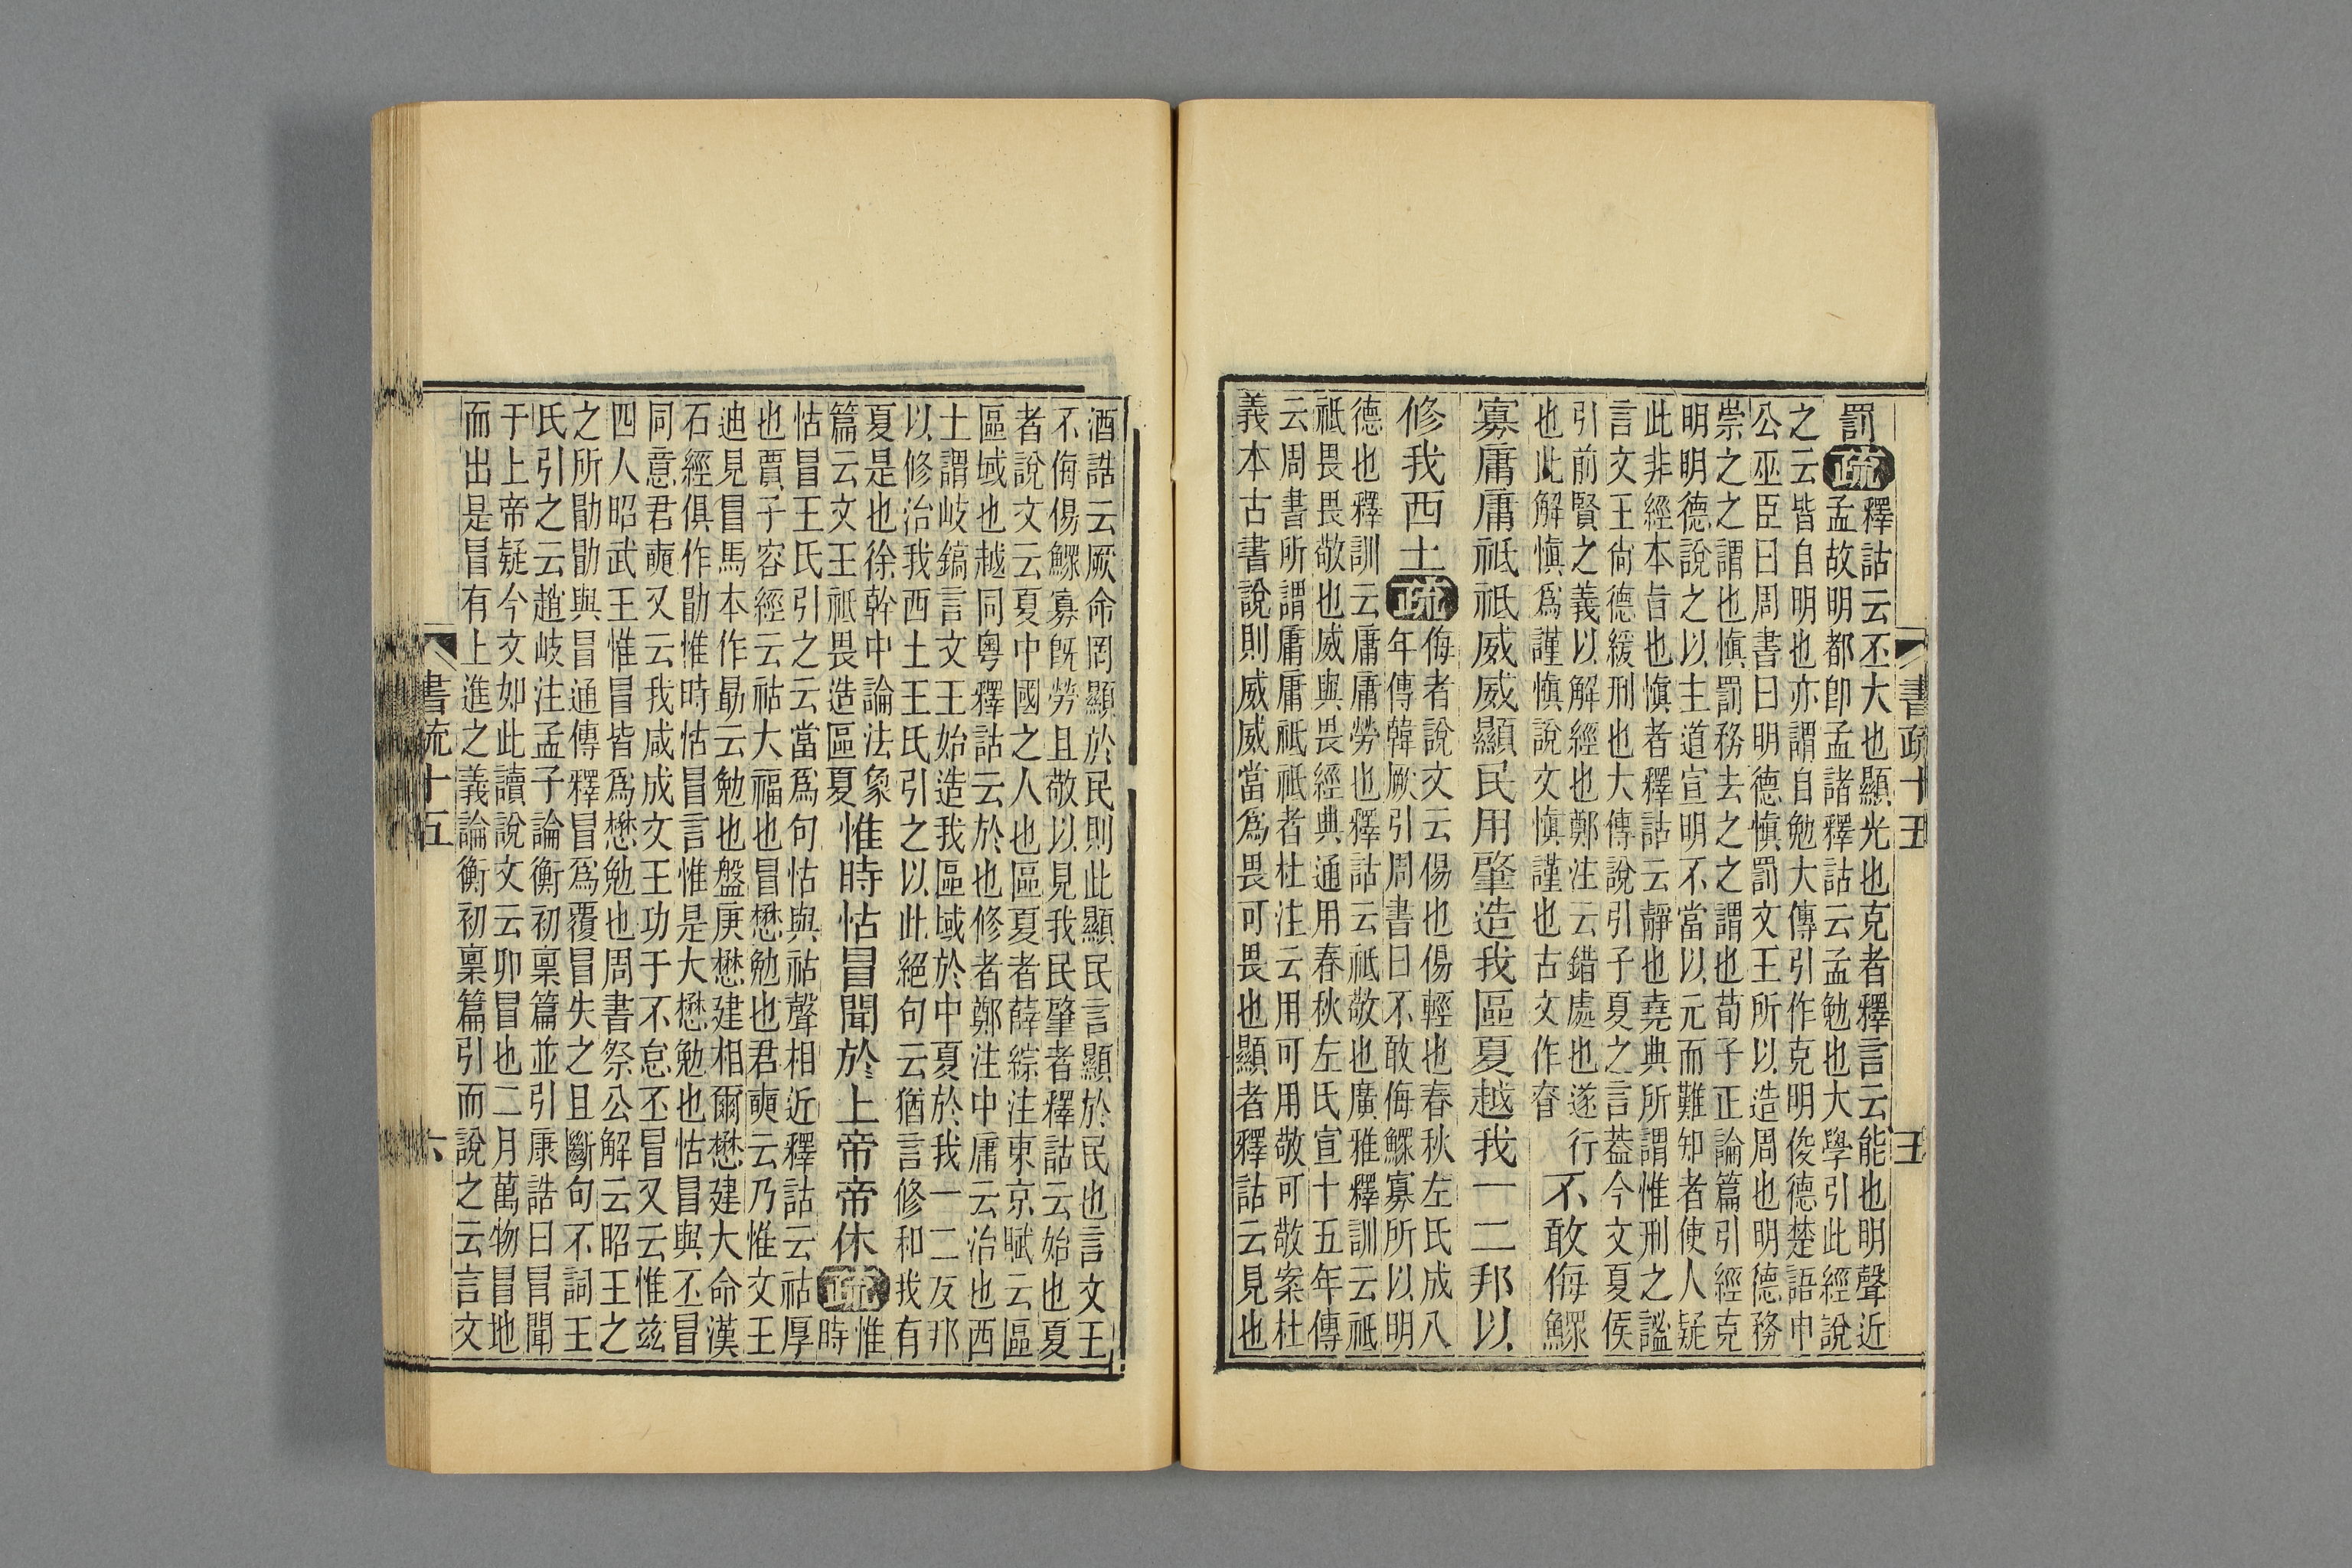 書疏十五
五
罰疏釋詁云丕大也顯光也克者釋言云能也明聲近
孟故明都卽孟諸釋詁云孟勉也大學引此經說
之云皆自明也亦謂自勉大傳引作克明俊德楚語申
公巫臣曰周書曰明德愼罰文王所以造周也明德務
崇之之謂也愼罰務去之之謂也荀子正論篇引經克
明明德說之以主道宣明不當以元而難知者使人疑
此非經本旨也愼者釋詁云靜也堯典所謂惟刑之謐
言文王尙德緩刑也大傳說引子夏之言葢今文夏侯
引前賢之義以解經也鄭注云錯處也遂行
也此解愼爲謹愼說文愼謹也古文作昚
不敢侮鰥
寡庸庸祗祗威威顯民用肇造我區夏越我一二邦以
修我西土疏侮者說文云傷也傷輕也春秋左氏成八
年傳韓厥引周書曰不敢侮鰥寡所以明
德也釋訓云庸庸勞也釋詁云祗敬也廣雅釋訓云祗
祗畏畏敬也威與畏經典通用春秋左氏宣十五年傳
云周書所謂庸庸祗祗者杜注云用可用敬可敬案杜
義本古書說則威威當爲畏可畏也顯者釋詁云見也
酒誥云厥命罔顯於民則此顯民言顯於民也言文王
不侮傷鰥寡旣勞且敬以見我民肇者釋詁云始也夏
者說文云夏中國之人也區夏者薛綜注東京賦云區
區域也越同粵釋詁云於也修者鄭注中庸云治也西
土謂岐鎬言文王始造我區域於中夏於我一二友邦
以修治我西土王氏引之以此絕句云猶言修和我有
夏是也徐幹中論法象
篇云文王祗畏造區夏
惟時怙冒聞於上帝帝休疏惟
時
怙冒王氏引之云當爲句怙與祜聲相近釋詁云祜厚
也賈子容經云祜大福也冒懋勉也君奭云乃惟文王
迪見冒馬本作勖云勉也盤庚懋建相爾懋建大命漢
石經俱作勖惟時怙冒言惟是大懋勉也怙冒與丕冒
同意君奭又云我咸成文王功于不怠丕冒又云惟茲
四人昭武王惟冒皆爲懋勉也周書祭公解云昭王之
之所勖勖與冒通傳釋冒爲覆冒失之且斷句不詞王
氏引之云趙岐注孟子論衡初稟篇並引康誥曰冒聞
于上帝疑今文如此讀說文云冃冒也二月萬物冒地
而出是冒有上進之義論衡初稟篇引而說之云言文
書疏十五
六